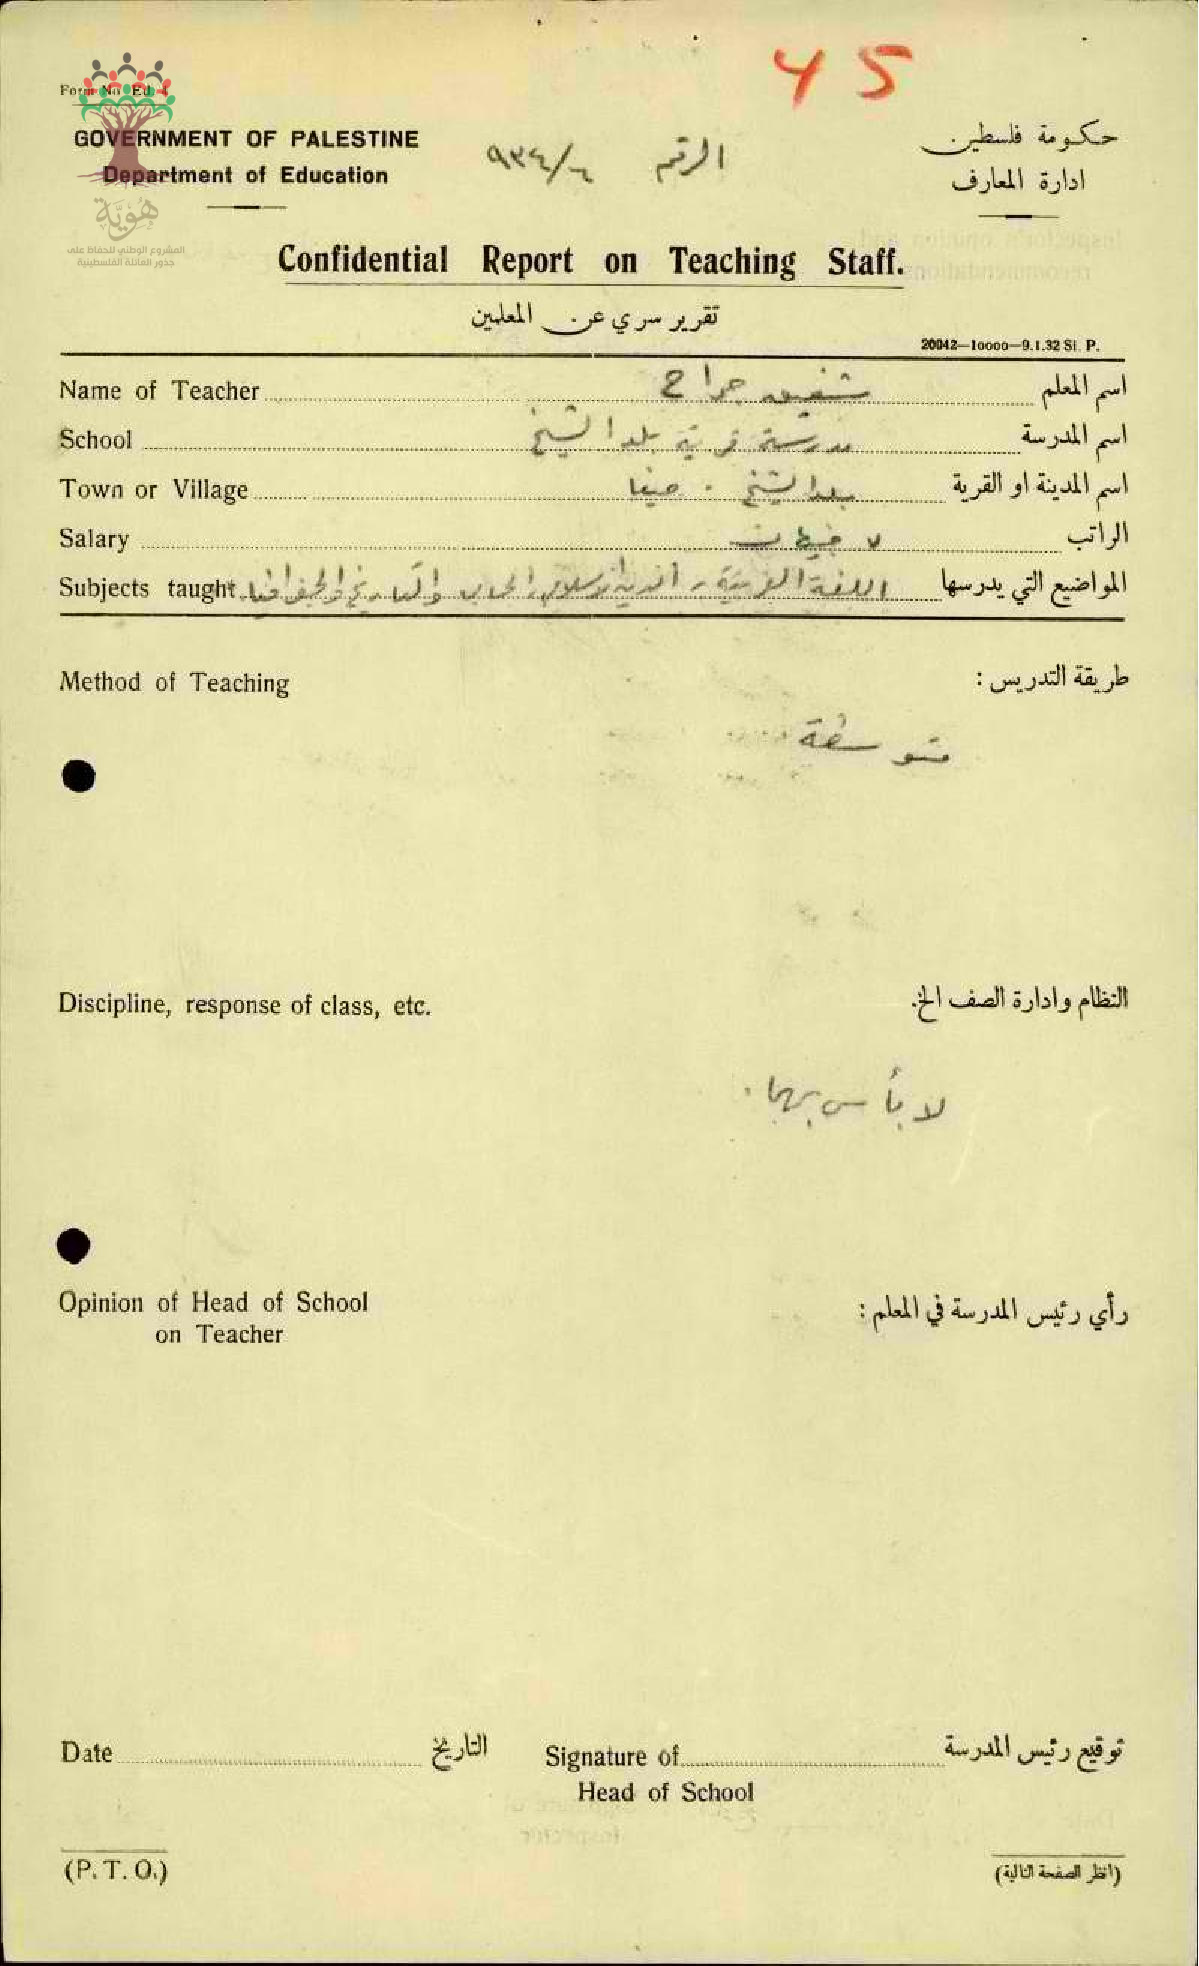 45
Form No Ed. 4
GOVERNMENT OF PALESTINE
حكومة فلسطين
Department of Education
ادارة المعارف
الرقم ٩٣٤/٦
هُوِيَّة
المشروع الوطني للحفاظ على
جذور العائلة الفلسطينية
Confidential Report on Teaching Staff.
تقرير سري عن المعلمين
20042—10000—9.1.32 SI. P.
Name of Teacher شفيق جراح اسم المعلم
School مدرسة قرية بلد الشيخ اسم المدرسة
Town or Village بلد الشيخ . حيفا اسم المدينة او القرية
Salary ٧ جنيهات الراتب
Subjects taught اللغة العربية والدين الاسلامي والحساب والتاريخ والجغرافيا المواضيع التي يدرسها
Method of Teaching طريقة التدريس :
متوسطة
Discipline, response of class, etc. النظام وادارة الصف الخ.
لا بأس بهما .
Opinion of Head of School
on Teacher
رأي رئيس المدرسة في المعلم :
Date التاريخ Signature of توقيع رئيس المدرسة
Head of School
(P. T. O.) (انظر الصفحة التالية)